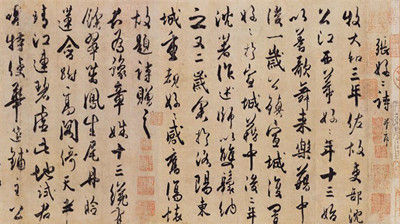 張好好詩并序
牧大和三年佐故吏部沈
公江西幕好好年十三始
以善歌舞來樂籍中
後一歲公鎮宣城復置
好好於宣城籍中後二年
沈著作述師以雙鬟納
之又二歲余於洛陽東
城重覩好好感舊傷懷
故題詩贈之
君為豫章姝十三纔有
餘翠茁鳳生尾丹臉
蓮含跗高閣倚天半
晴江連碧虛此地試君
唱特使華筵鋪主公